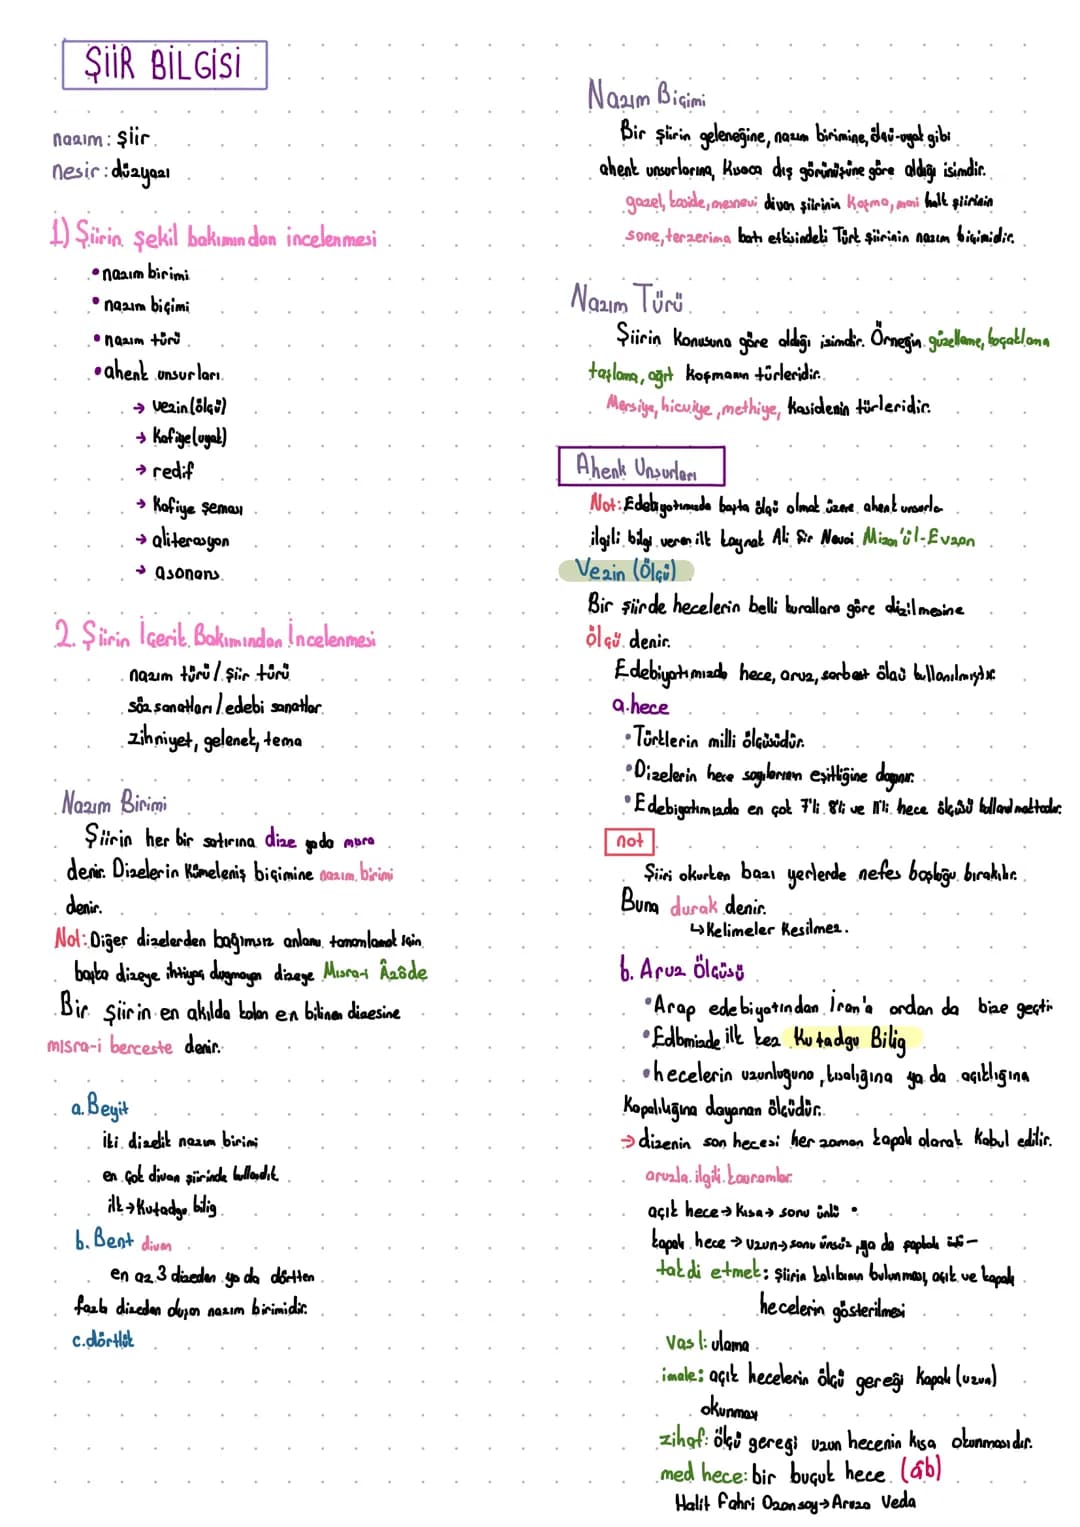 ŞİİR BİLGİSİ
nazım: şiir
nesir: düzyazı
1) Şiirin şekil bakımından incelenmesi
• nazım birimi
• nazım biçimi
• nazım türü
• ahenk unsurları
→ vezin (ölçü)
→ kafiye (uyak)
→ redif
→ kafiye şeması
→ aliterasyon
→ asonans
2. Şiirin İçerik Bakımından İncelenmesi
nazım türü / şiir türü
söz sanatları / edebi sanatlar
zihniyet, gelenek, tema
Nazım Birimi
Şiirin her bir satırına dize ya da mısra
denir. Dizelerin kümeleniş biçimine nazım birimi
denir.
Not: Diğer dizelerden bağımsız anlamı tamamlamak için
başka dizeye ihtiyaç duymayan dizeye Mısra-ı Âzâde
Bir şiirin en akılda kalan en bilinen dizesine
mısra-i berceste denir.
a. Beyit
iki dizelik nazım birimi
en çok divan şiirinde kullandık
ilk → Kutadgu bilig
b. Bent divan
en az 3 dizeden ya da dörtten
fazla dizeden oluşan nazım birimidir.
c. dörtlük
Nazım Biçimi
Bir şiirin geleneğine, nazım birimine, ölçü-uyak gibi
ahenk unsurlarına, kısaca dış görünüşüne göre aldığı isimdir.
gazel, kaside, mesnevi divan şiirinin koşma, mani halk şiirinin
sone, terzerima batı etkisindeki Türk şiirinin nazım biçimidir.
Nazım Türü
Şiirin konusuna göre aldığı isimdir. Örneğin güzelleme, koçaklama
taşlama, ağıt koşmanın türleridir.
Mersiye, hicviye, methiye, kasidenin türleridir.
Ahenk Unsurları
Not: Edebiyatımızda başta ölçü olmak üzere ahenk unsurla
ilgili bilgi veren ilk kaynak Ali Şir Nevai Mizan'ül-Evzan
Vezin (Ölçü)
Bir şiirde hecelerin belli kurallara göre dizilmesine
ölçü denir.
Edebiyatımızda hece, aruz, serbest ölçü kullanılmıştır.
a. hece
• Türklerin milli ölçüsüdür.
• Dizelerin hece sayılarının eşitliğine dayanır.
• Edebiyatımızda en çok 7'li 8'li ve 11'li hece ölçüsü kullanılmaktadır.
not
Şiiri okurken bazı yerlerde nefes boşluğu bırakılır.
Buna durak denir.
↳ Kelimeler kesilmez.
b. Aruz Ölçüsü
• Arap edebiyatından İran'a ordan da bize geçti
• Edbmizde ilk kez Kutadgu Bilig
• hecelerin uzunluğuna, kısalığına ya da açıklığına
kapalılığına dayanan ölçüdür.
→ dizenin son hecesi her zaman kapalı olarak kabul edilir.
aruzla ilgili kavramlar
açık hece → kısa → sonu ünlü •
kapalı hece → uzun → sonu ünsüz, ya da şapkalı ünlü —
takdi etmek: şiirin kalıbının bulunması, açık ve kapalı
hecelerin gösterilmesi
Vasl: ulama
imale: açık hecelerin ölçü gereği kapalı (uzun)
okunması
zihaf: ölçü gereği uzun hecenin kısa okunmasıdır.
med hece: bir buçuk hece (âb)
Halit Fahri Ozansoy → Aruza Veda